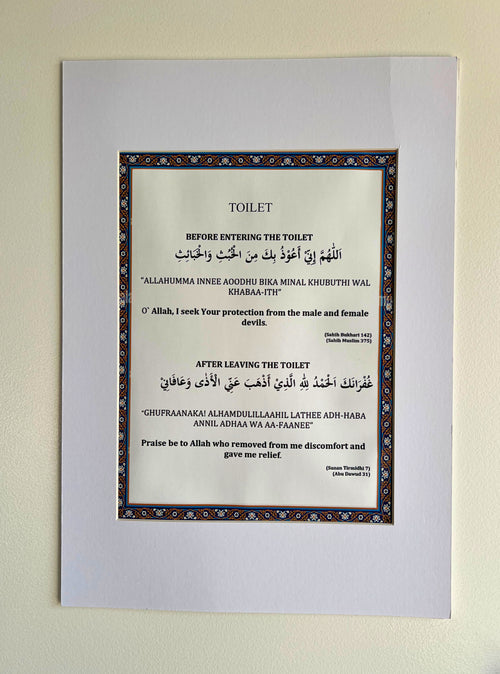 TOILET
BEFORE ENTERING THE TOILET
اَللّٰهُمَّ إِنِّيْ أَعُوْذُ بِكَ مِنَ الْخُبُثِ وَالْخَبَائِثِ
"ALLAHUMMA INNEE AOODHU BIKA MINAL KHUBUTHI WAL
KHABAA-ITH"
O` Allah, I seek Your protection from the male and female
devils.
(Sahih Bukhari 142)
(Sahih Muslim 375)
AFTER LEAVING THE TOILET
غُفْرَانَكَ اَلْحَمْدُ لِلّٰهِ الَّذِيْ أَذْهَبَ عَنِّي الْأَذٰى وَعَافَانِيْ
"GHUFRAANAKA! ALHAMDULILLAAHIL LATHEE ADH-HABA
ANNIL ADHAA WA AA-FAANEE"
Praise be to Allah who removed from me discomfort and
gave me relief.
(Sunan Tirmidhi 7)
(Abu Dawud 31)